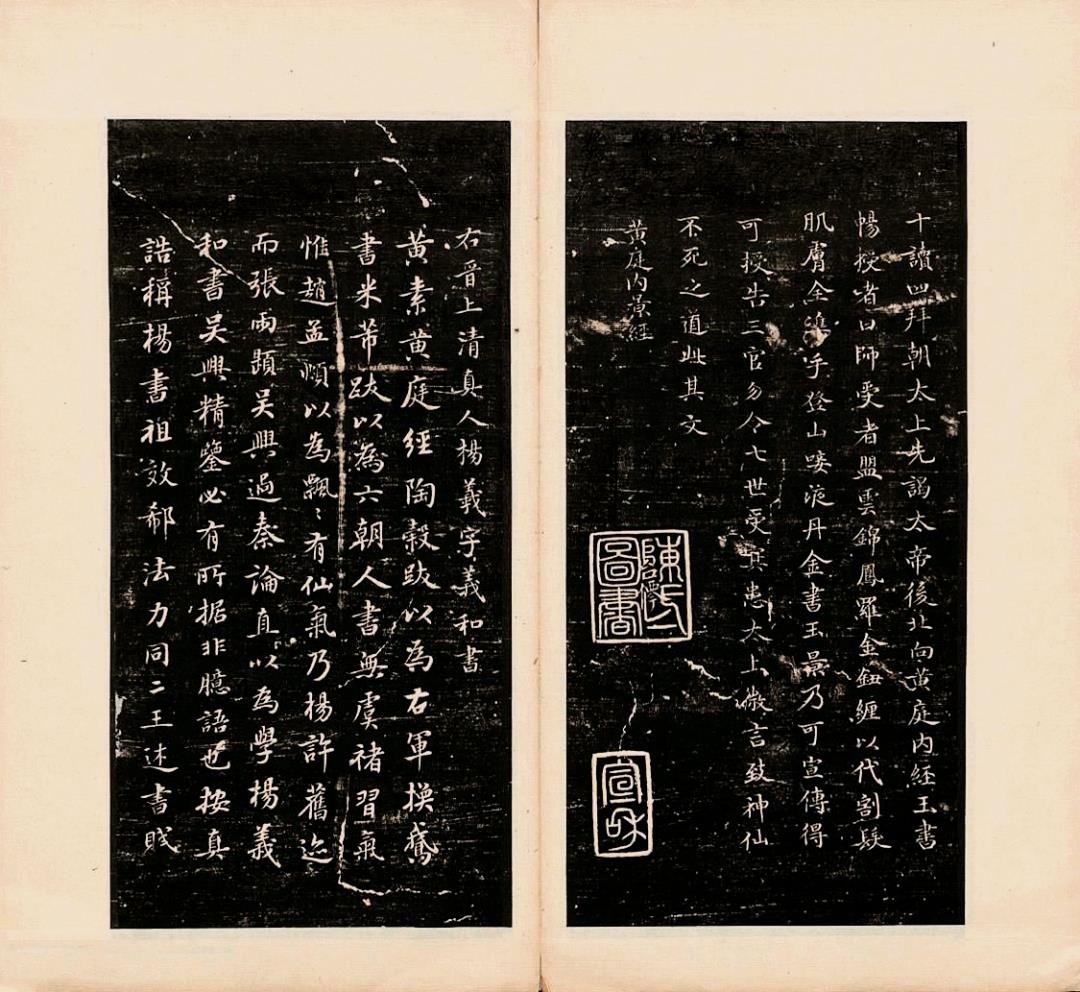 十讀四拜朝太上先謁太帝後北向黃庭内經玉書
暢授者曰師受者盟雲錦鳳羅金鈕纏以代割髮
肌膚全㩗手登山歃液丹金書玉景乃可宣傳得
可授告三官勿令七世受其患太上微言致神仙
不死之道此其文
黃庭内景經
陳氏圖書
宣和
右晉上清真人楊羲字羲和書
黃素黃庭經陶穀跋以為右軍換鵞
書米芾跋以為六朝人書無虞褚習氣
惟趙孟頫以為飄〻有仙氣乃楊許舊迹
而張雨題吴興過秦論直以為學楊羲
和書吴興精鑒必有所据非臆語也按真
誥稱楊書祖效郗法力同二王述書賦